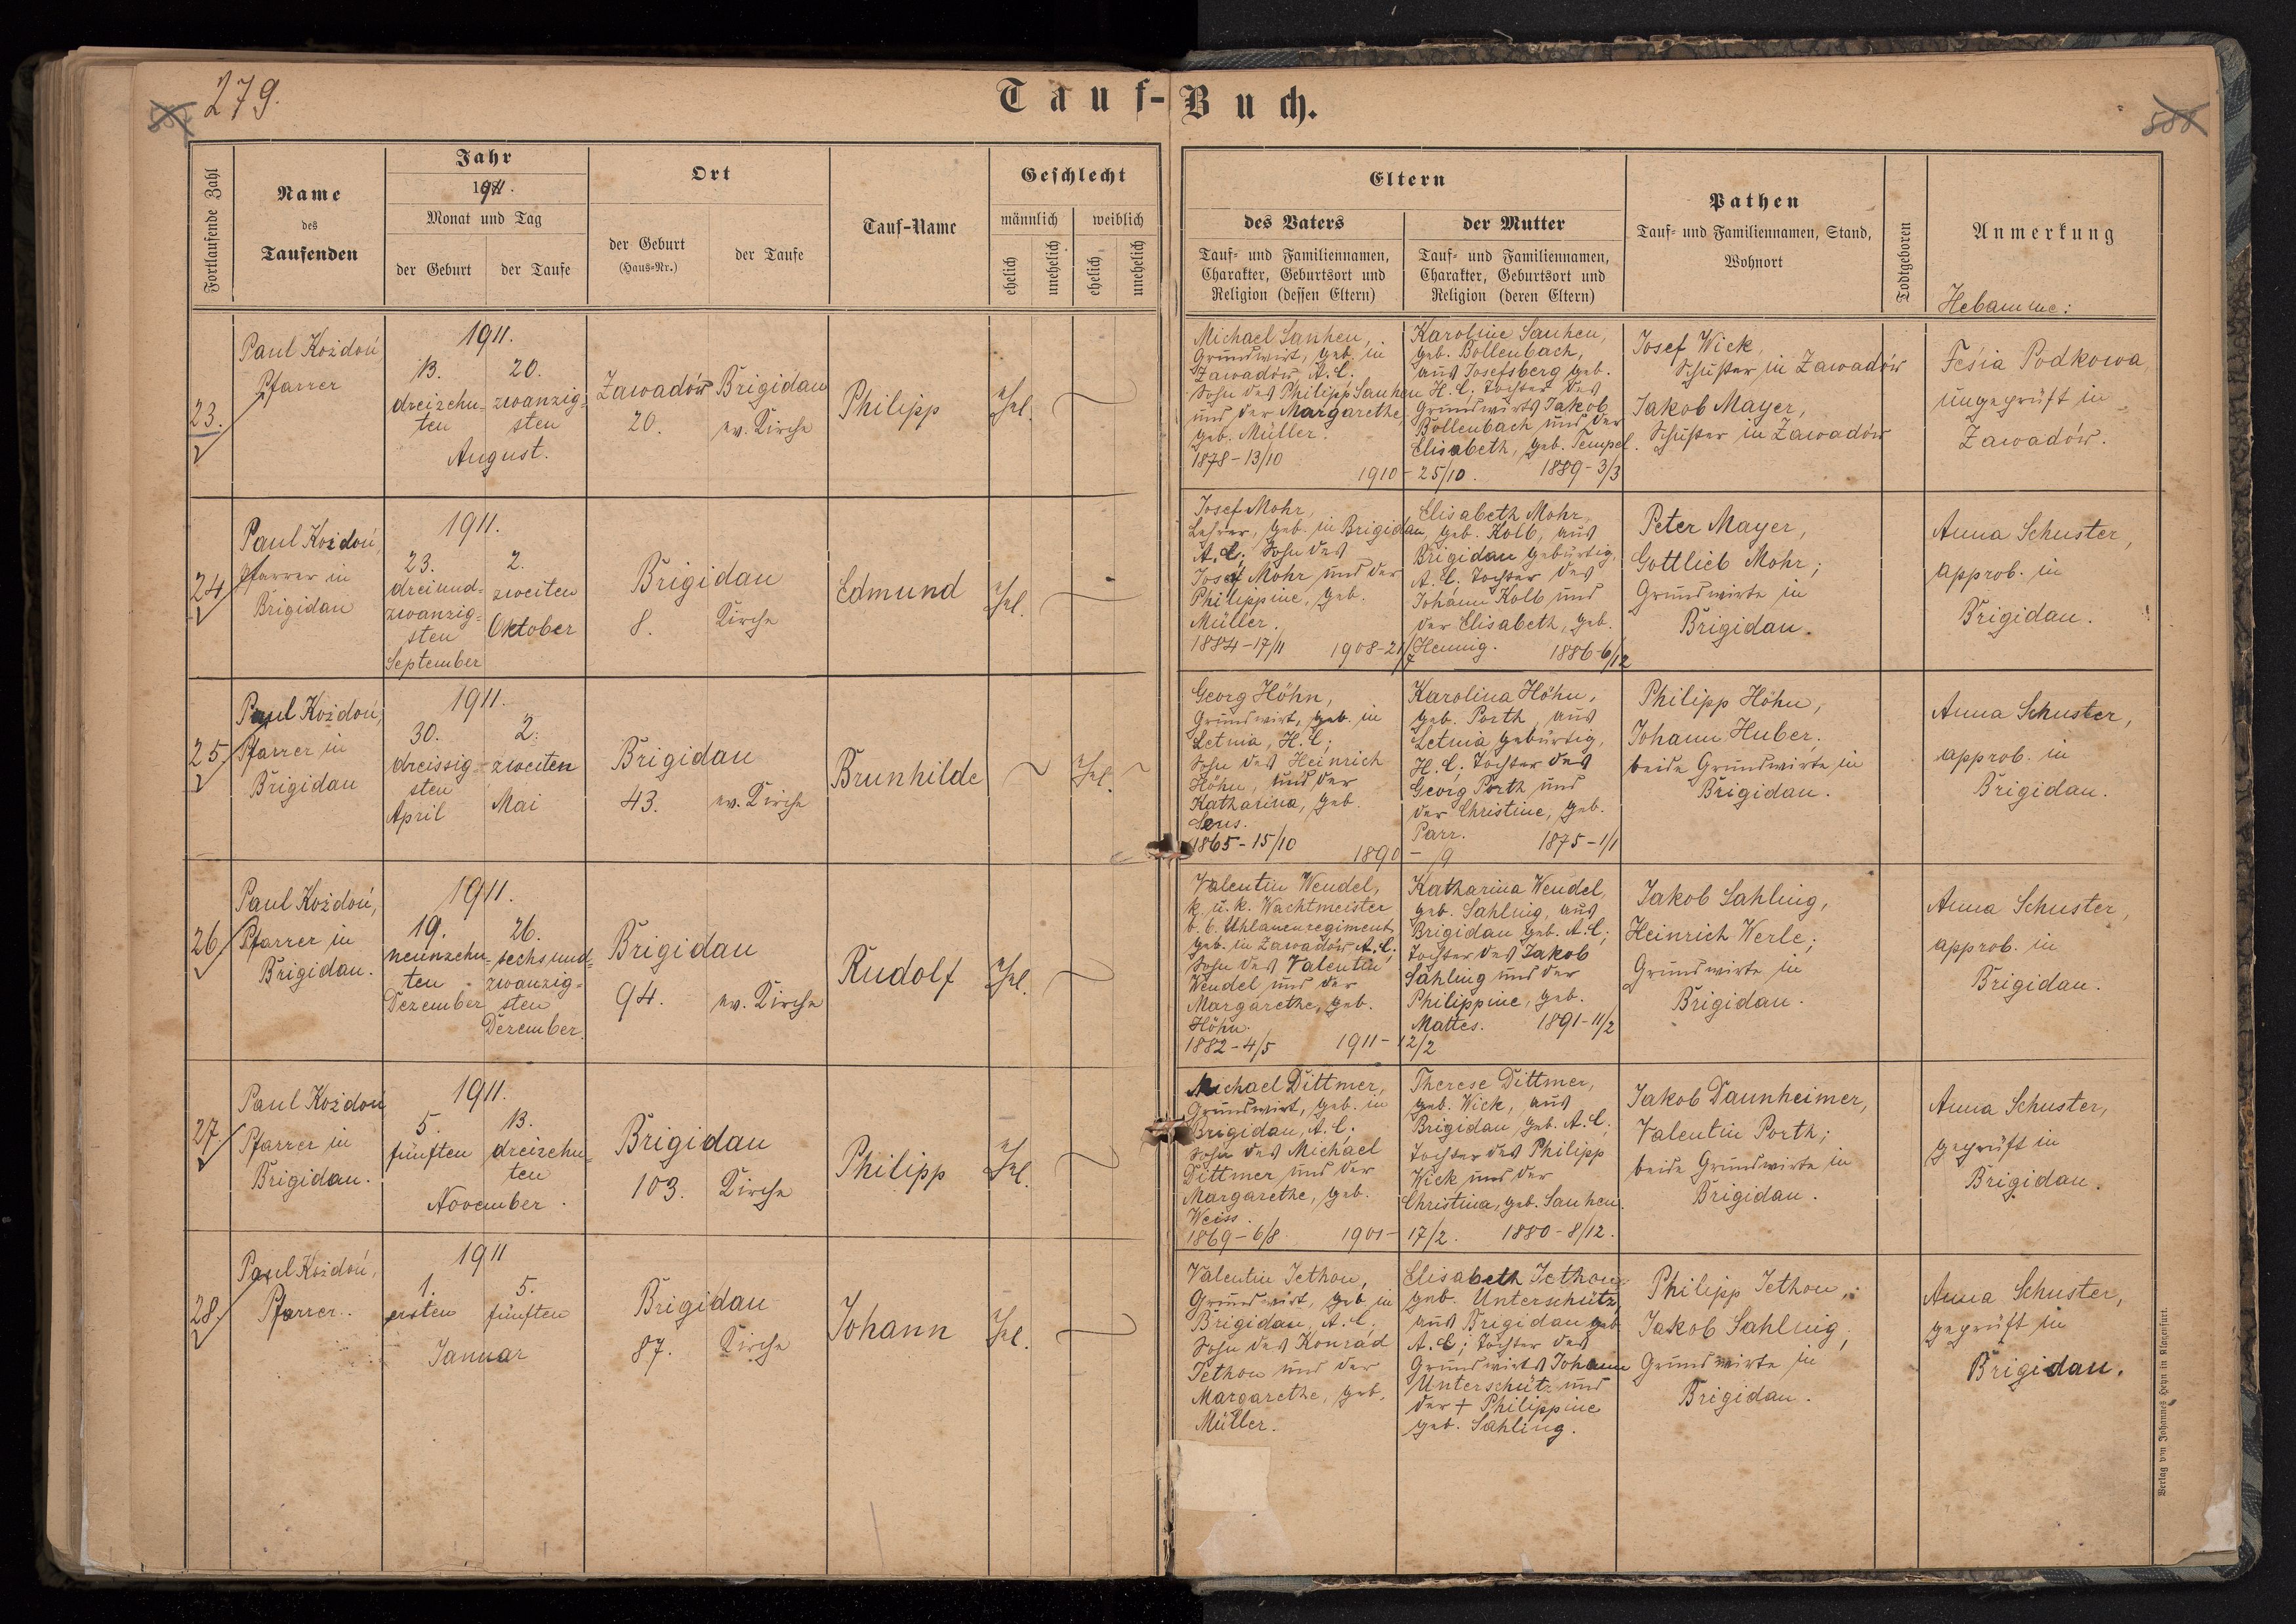 587
279.
Tauf-Buch.
588
Fortlaufende Zahl
Name
des
Taufenden
Jahr
1911.
Monat und Tag
der Geburt
der Taufe
Ort
der Geburt
(Haus-Nr.)
der Taufe
Tauf-Name
Geschlecht
männlich
weiblich
ehelich
unehelich
ehelich
unehelich
Eltern
des Vaters
Tauf- und Familiennamen,
Charakter, Geburtsort und
Religion (dessen Eltern)
der Mutter
Tauf- und Familiennamen,
Charakter, Geburtsort und
Religion (deren Eltern)
Pathen
Tauf- und Familiennamen, Stand,
Wohnort
Todtgeboren
Anmerkung
Hebamme:
23.
Paul Kożdoń,
Pfarrer
1911.
13.
dreizehn-
ten
20.
zwanzig-
sten
August.
Zawadów
20.
Brigidau
ev. Kirche
Philipp
Ehel.
Michael Sauhen,
Grundwirt, geb. in
Zawadów, A. C.
Sohn des Philipp Sauhen
und der Margarethe,
geb. Müller.
1878-13/10
1910-25/10.
Karoline Sauhen,
geb. Bollenbach,
aus Josefsberg geb.
H. C. Tochter des
Grundwirts Jakob
Bollenbach und der
Elisabeth, geb. Tempel.
1889-3/3
Josef Wick,
Schuster in Zawadów
Jakob Mayer,
Schuster in Zawadów
Fesia Podkowa,
ungeprüft in
Zawadów.
24.
Paul Kożdoń,
Pfarrer in
Brigidau
1911.
23.
dreiund-
zwanzig-
sten
September
2.
zweiten
Oktober
Brigidau
8.
Kirche
Edmund
Ehel.
Josef Mohr,
Lehrer, geb. in Brigidau,
A. C. Sohn des
Josef Mohr und der
Philippine, geb.
Müller.
1884-17/11
1908-21/7
Elisabeth Mohr,
geb. Kolb, aus
Brigidau gebürtig,
A. C. Tochter des
Johann Kolb und
der Elisabeth, geb.
Hennig.
1886-6/12
Peter Mayer,
Gottlieb Mohr;
Grundwirte in
Brigidau.
Anna Schuster,
approb. in
Brigidau.
25.
Paul Kożdoń,
Pfarrer in
Brigidau
1911.
30.
dreissig-
sten
April
2.
zweiten
Mai
Brigidau
43.
ev. Kirche
Brunhilde
Ehel.
Georg Höhn,
Grundwirt, geb. in
Letnia, H. C;
Sohn des Heinrich
Höhn, und der
Katharina, geb.
1865-15/10
1890 - /9
Karolina Höhn,
geb. Porth, aus
Letnia gebürtig,
H. C. Tochter des
Georg Porth und
der Christine, geb.
Parr.
1875-1/1
Philipp Höhn,
Johann Huber;
beide Grundwirte in
Brigidau.
Anna Schuster,
approb. in
Brigidau.
26.
Paul Kożdoń,
Pfarrer in
Brigidau.
1911.
19.
neunzehn-
ten
Dezember
26.
sechsund-
zwanzig-
sten
Dezember.
Brigidau
94.
ev. Kirche
Rudolf
Ehel.
Valentin Wendel,
k. u. k. Wachtmeister
b. 6. Uhlanenregiment,
geb. in Zawadów A. C;
Sohn des Valentin
Wendel und der
Margarethe, geb.
Höhn.
1882-4/5
1911-12/2
Katharina Wendel,
geb. Sahling, aus
Brigidau geb. A. C;
Tochter des Jakob
Sahling und der
Philippine, geb.
Mattes.
1891-11/2
Jakob Sahling,
Heinrich Werle;
Grundwirte in
Brigidau.
Anna Schuster,
approb. in
Brigidau.
27.
Paul Kożdoń
Pfarrer in
Brigidau.
1911.
5.
fünften
13.
dreizehn-
ten
November.
Brigidau
103.
Kirche
Philipp
Ehel.
Michael Dittmer,
Grundwirt, geb. in
Brigidau, A. C;
Sohn des Michael
Dittmer und der
Margarethe, geb.
Weiss.
1869-6/8
1901-17/2.
Therese Dittmer,
geb. Wick, aus
Brigidau geb. A. C;
Tochter des Philipp
Wick und der
Christina, geb. Sauhen.
1880-8/12.
Jakob Daunheimer,
Valentin Porth;
beide Grundwirte in
Brigidau.
Anna Schuster,
geprüft in
Brigidau.
28.
Paul Kożdoń,
Pfarrer.
1911
1.
ersten
5.
fünften
Januar
Brigidau
87.
Kirche
Johann
Ehel.
Valentin Jethon,
Grundwirt, geb. in
Brigidau, A. C;
Sohn des Konrad
Jethon und der
Margarethe, geb.
Müller.
Elisabeth Jethon,
geb. Unterschütz,
aus Brigidau geb.
A. C; Tochter des
Grundwirts Johann
Unterschütz und
der + Philippine
geb. Sahling.
Philipp Jethon,
Jakob Sahling,
Grundwirte in
Brigidau.
Anna Schuster,
geprüft in
Brigidau.
Verlag von Johannes Heyn in Klagenfurt.